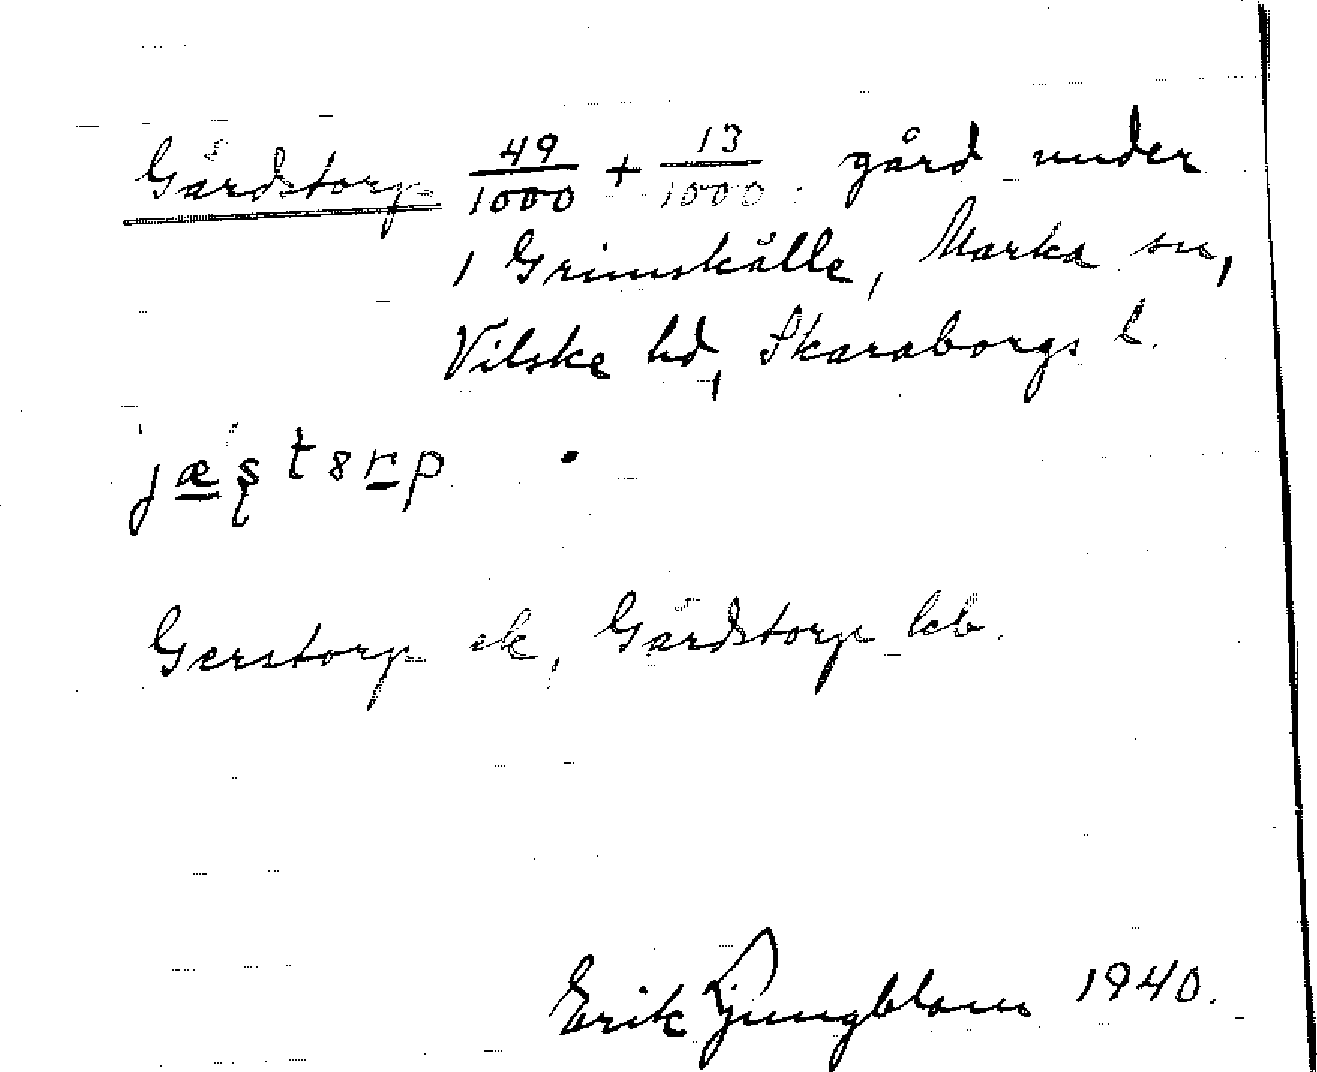 Gärdstorp 49/1000 + 13/1000 gård under
1 Grimskälle, Marka sn,
Vilske hd, Skaraborgs l.
jæʂtɞrp
Gerstorp ek, Gärdstorp kb.
Erik Ljungblom 1940.